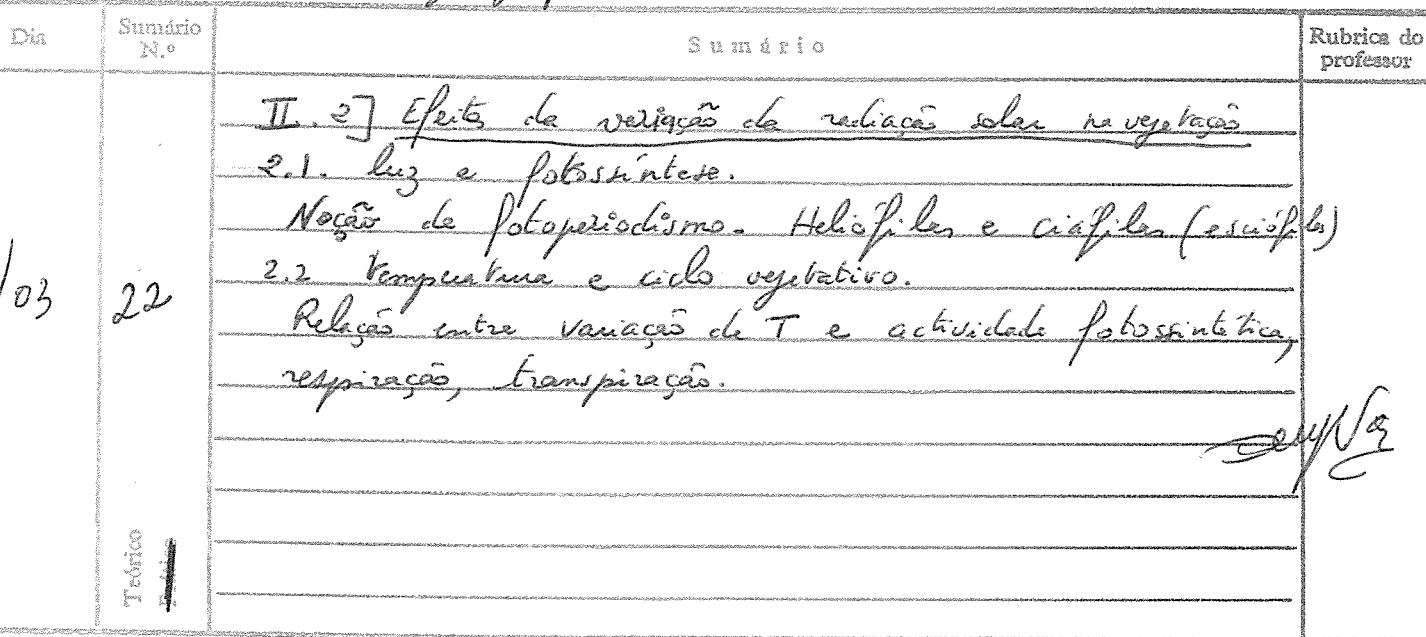 Dia
Sumário N.º
Sumário
Rubrica do professor
II. 2] Efeitos da variação da radiação solar na vegetação
2.1. luz e fotossíntese.
Noção de fotoperiodismo. Heliófilas e ciáfilas (esciófilas)
2.2 Temperatura e ciclo vegetativo.
/03
22
Relação entre variação de T e actividade fotossintética,
respiração, transpiração.
Teórico